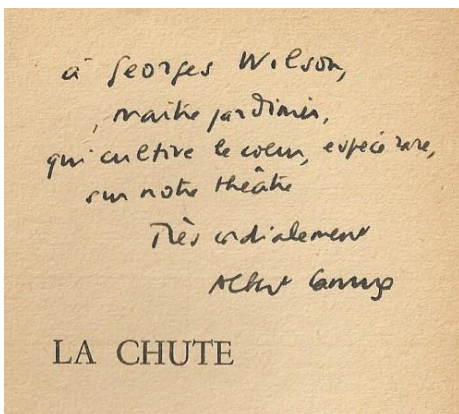 à Georges Wilson,
maître jardinier,
qui cultive le cœur, espèce rare,
sur notre théâtre
Très cordialement
Albert Camus
LA CHUTE